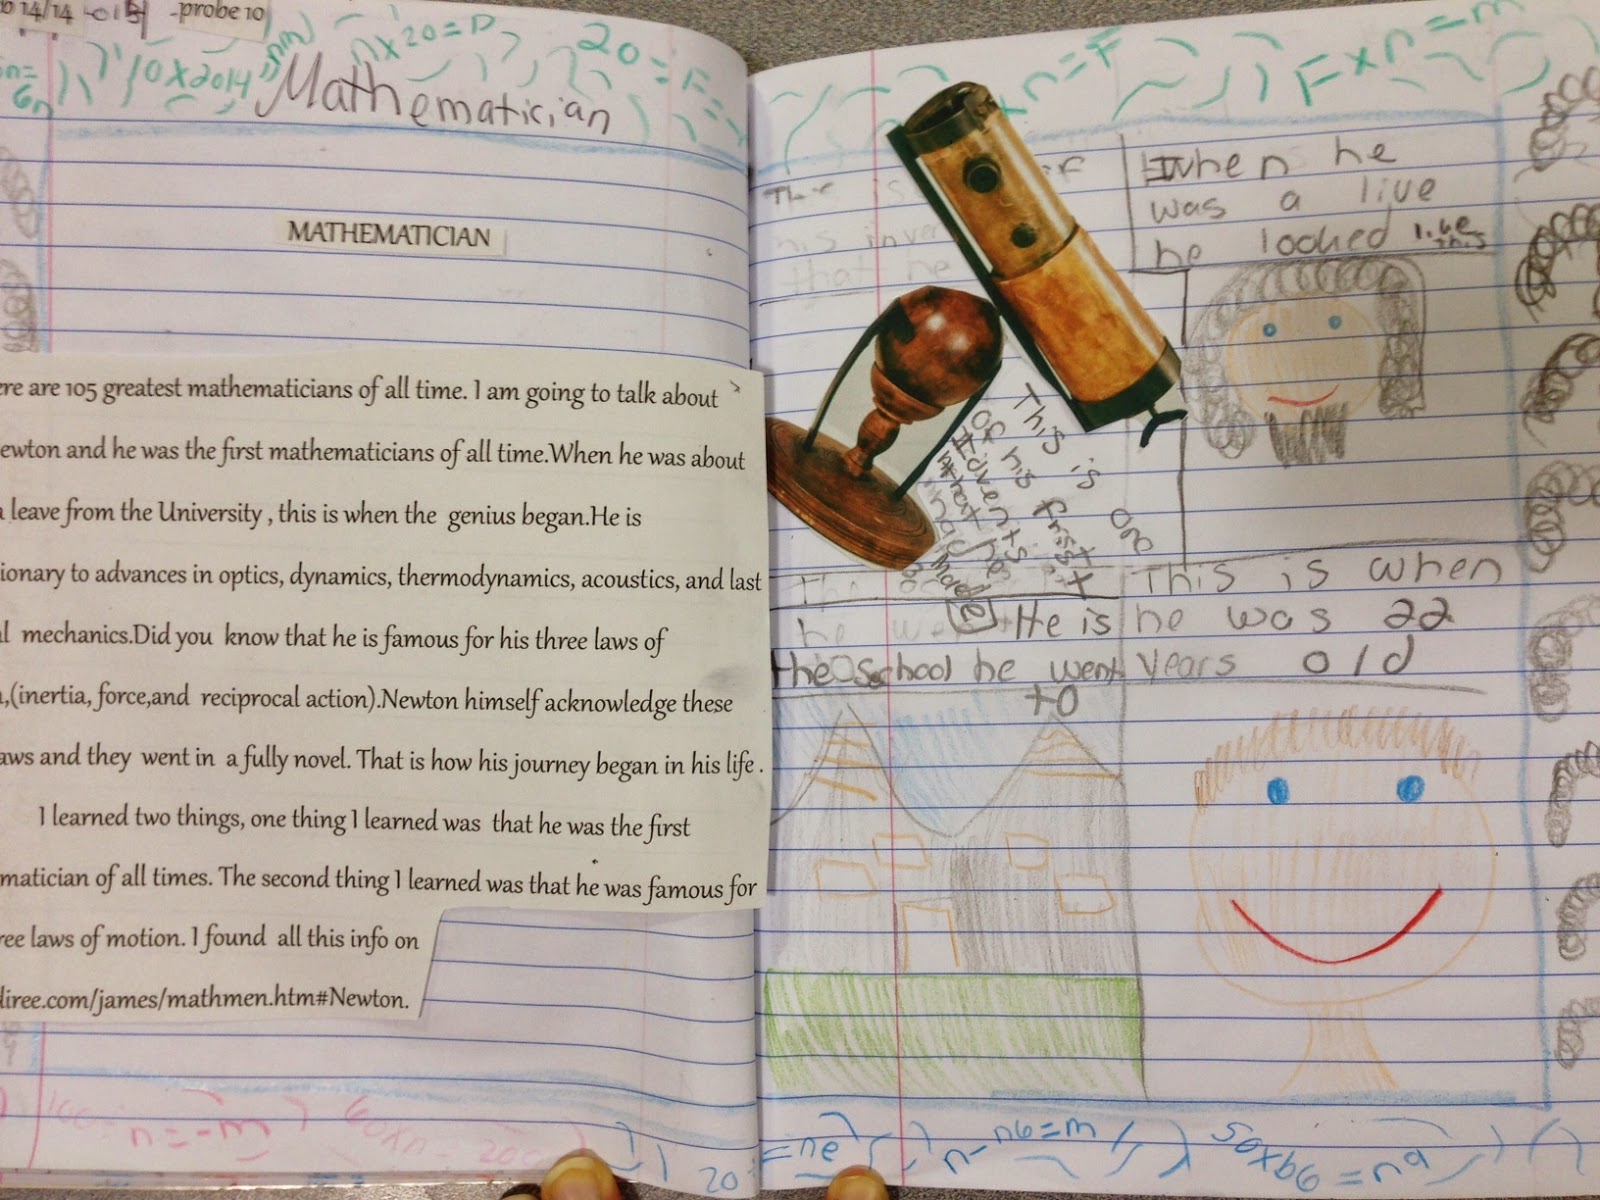 14/14
-probe 10
10x2014
nx20=D
20=F=
Mathematician
MATHEMATICIAN
ere are 105 greatest mathematicians of all time. I am going to talk about
ewton and he was the first mathematicians of all time.When he was about
leave from the University , this is when the genius began.He is
ionary to advances in optics, dynamics, thermodynamics, acoustics, and last
l mechanics.Did you know that he is famous for his three laws of
,(inertia, force,and reciprocal action).Newton himself acknowledge these
aws and they went in a fully novel. That is how his journey began in his life .
I learned two things, one thing I learned was that he was the first
matician of all times. The second thing I learned was that he was famous for
ree laws of motion. I found all this info on
diree.com/james/mathmen.htm#Newton.
n=-m
60xn=200
20
xn=F
Fxn=m
When he
was a live
he looked like
this
This is one
of his first
that he
made
This is when
he was 22
years old
He is
the school he went
to
=ne
n-n6=m
50x96=n9